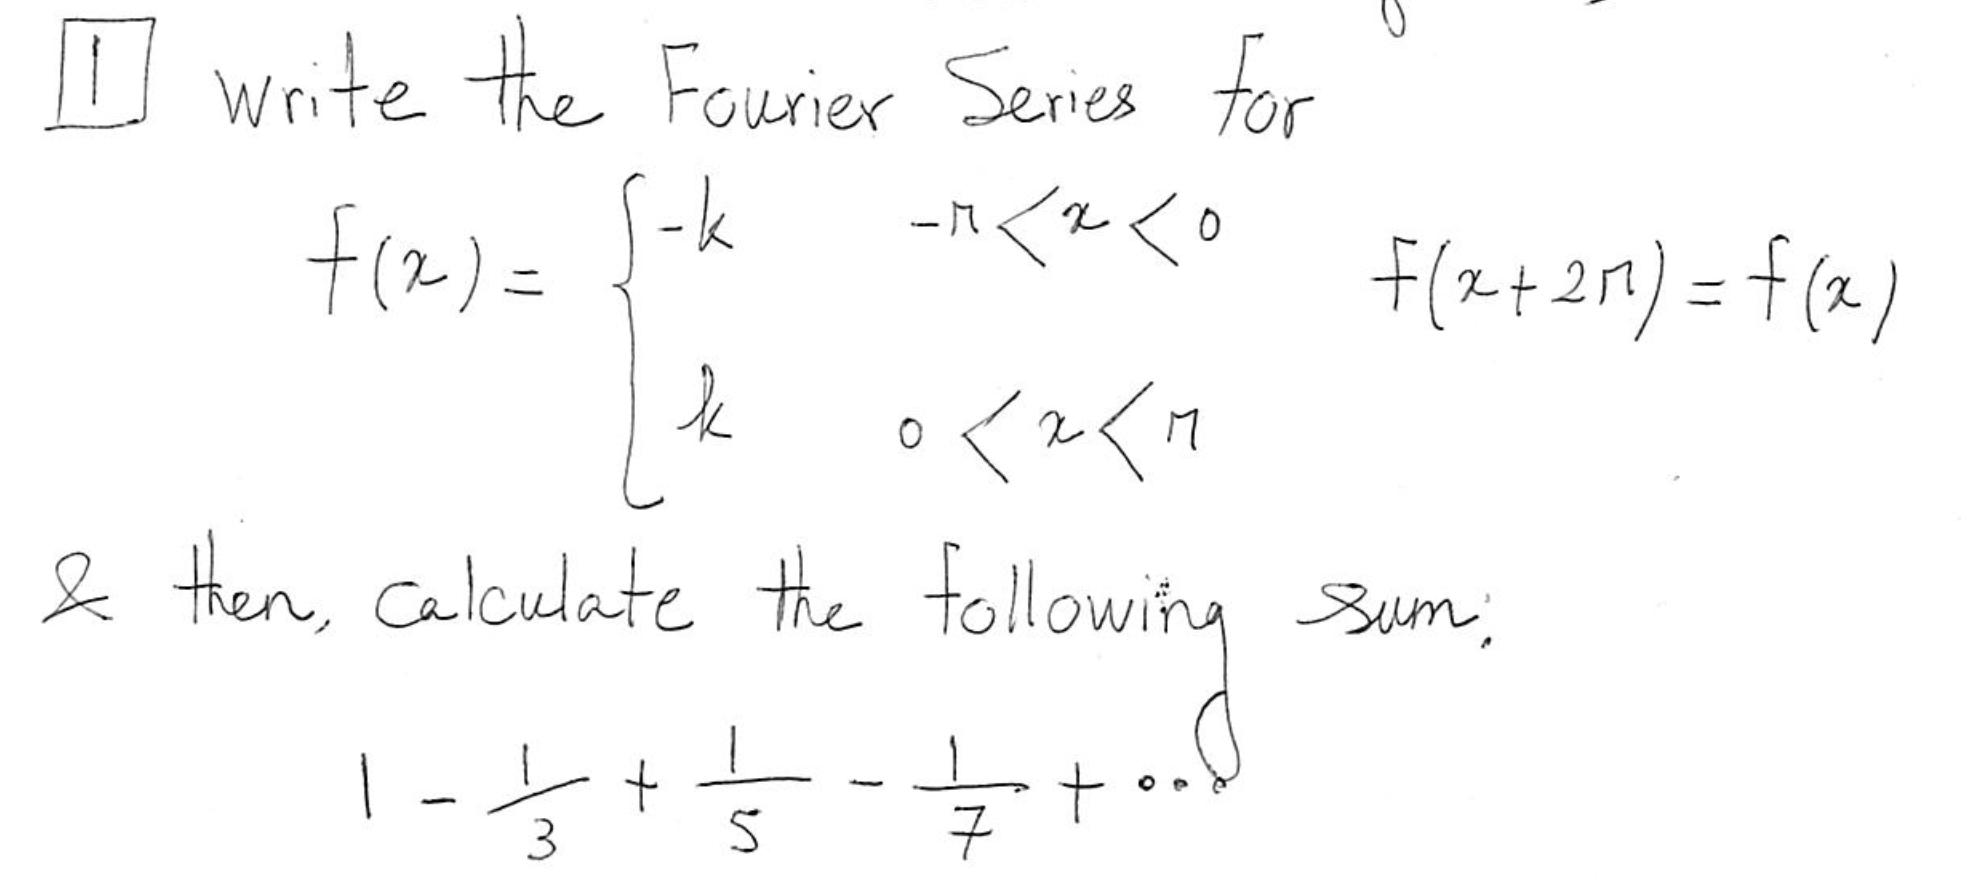 1 Write the Fourier Series for
f(x) = { -k   -π < x < 0
f(x+2π) = f(x)
k   0 < x < π
& then, calculate the following sum:
1 - 1/3 + 1/5 - 1/7 + ...